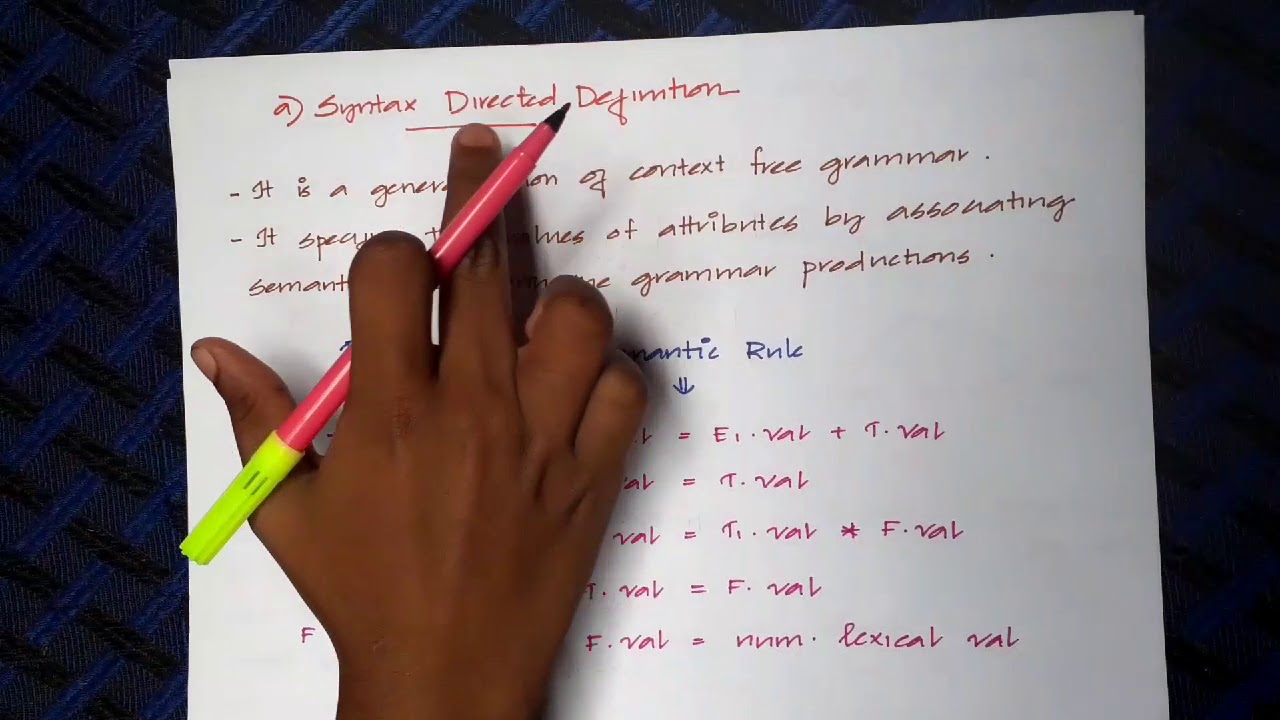 a) Syntax Directed Definition
- It is a of context free grammar.
- It values of attributes by associating
grammar productions.
Semantic Rule
⇓
= E₁.val + T.val
= T.val
val = T₁.val * F.val
T.val = F.val
F F.val = num.lexical val